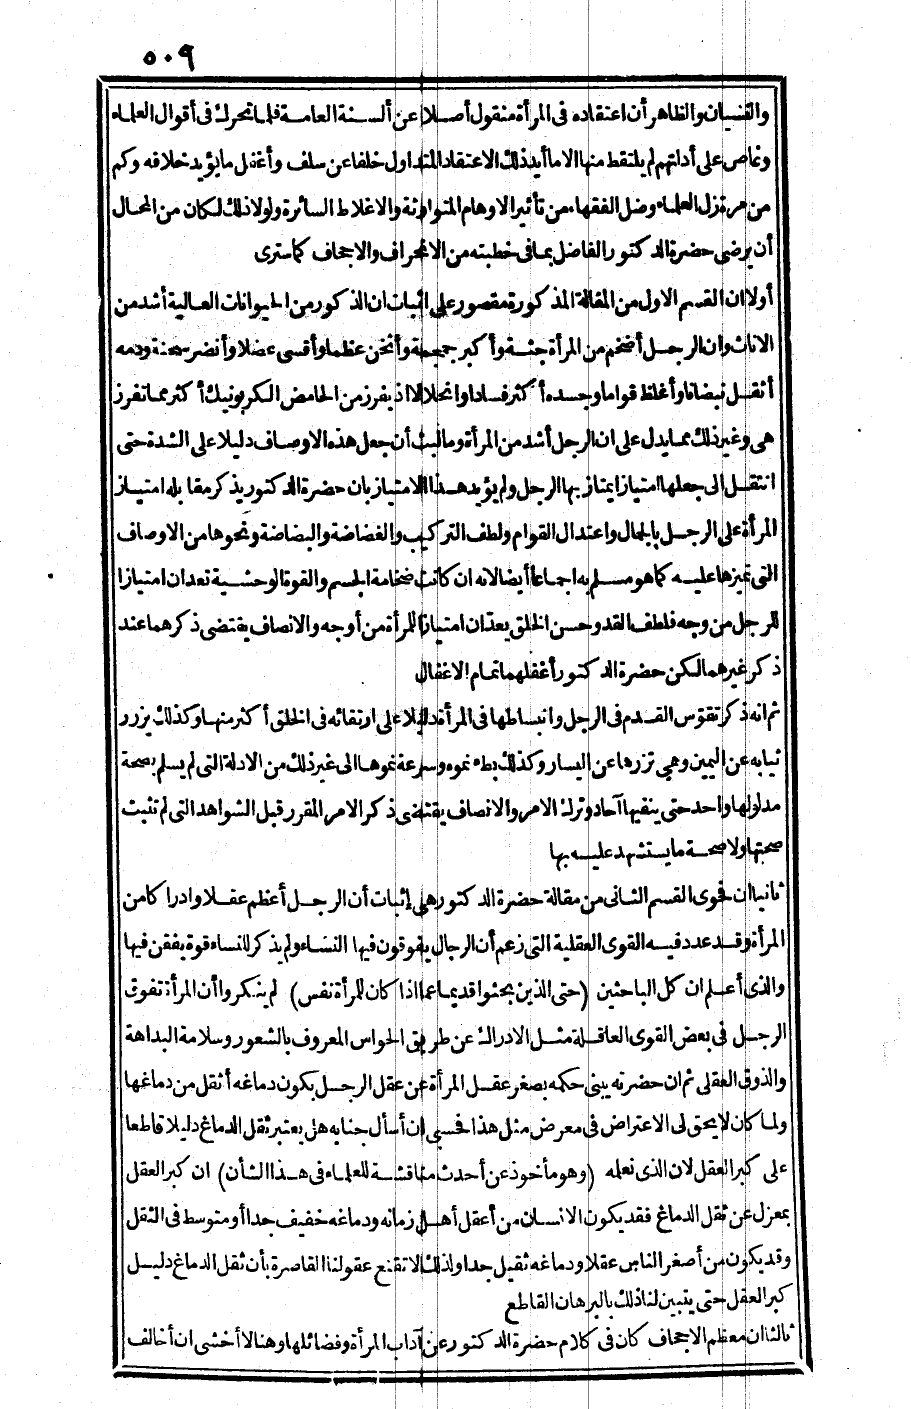 ٥٠٩
والفتيان والظاهر أن اعتقاده فى المرأة منقول أصلا عن ألسنة العامة فلما تحرك فى أقوال العلماء
وغاص على أدلتهم لم يلتقط منها الا ما أيد ذلك الاعتقاد المتداول خلفا عن سلف وأغفل ما يؤيد خلافه وكم
من مرة زل العلماء وضل الفقهاء من تأثير الاوهام المتوارثة والاغلاط السائرة ولولا ذلك لكان من المحال
أن يرضى حضرة الدكتور الفاضل بما فى خطبته من الانحراف والاجحاف كما سترى
أولا ان القسم الاول من المقالة المذكورة مقصور على اثبات ان الذكور من الحيوانات العالية أشد من
الاناث وان الرجل أضخم من المرأة جثة وأكبر جمجمة وأثخن عظما وأقسى عضلا وأنضر سحنة ودمه
أثقل نبضانا وأغلظ قواما وجسده أكثر فسادا وانحلالا اذ يفرز من الحامض الكربونيك أكثر مما تفرز
هى وغير ذلك مما يدل على ان الرجل أشد من المرأة وما لبث أن جعل هذه الاوصاف دليلا على الشدة حتى
انتقل الى جعلها امتيازا يمتاز بها الرجل ولم يؤيد هذا الامتياز بان حضرة الدكتور يذكر مقابله امتياز
المرأة على الرجل بالجمال واعتدال القوام ولطف التركيب والغضاضة والبضاضة ونحوها من الاوصاف
التى تميزها عليه كما هو مسلم به اجماعا أيضا لانه ان كانت ضخامة الجسم والقوة الوحشية تعدان امتيازا
للرجل من وجه فلطف القد وحسن الخلق يعدان امتيازا للمرأة من أوجه والانصاف يقتضى ذكرهما عند
ذكر غيرهما لكن حضرة الدكتور أغفلهما تمام الاغفال
ثم انه ذكر تقوس القدم فى الرجل وانبساطها فى المرأة دليلا على ارتقائه فى الخلق أكثر منها وكذلك يزرر
ثيابه عن اليمين وهى تزرها عن اليسار وكذلك بطء نموه وسرعة نموها الى غير ذلك من الادلة التى لم يسلم بصحة
مدلولها واحد حتى ينفيها آحاد وترك الامر والانصاف يقتضى ذكر الامر المقرر قبل الشواهد التى لم تثبت
صحتها ولا صحة ما يستشهد عليه بها
ثانيا ان فحوى القسم الثانى من مقالة حضرة الدكتور هى إثبات أن الرجل أعظم عقلا وادراكا من
المرأة وقد عدد فيه القوى العقلية التى زعم أن الرجال يفوقون فيها النساء ولم يذكر للنساء قوة يفقن فيها
والذى أعلم ان كل الباحثين (حتى الذين بحثوا قديما عما اذا كان للمرأة نفس) لم ينكروا أن المرأة تفوق
الرجل فى بعض القوى العاقلة مثل الادراك عن طريق الحواس المعروف بالشعور وسلامة البداهة
والذوق العقلى ثم ان حضرته يبنى حكمه بصغر عقل المرأة عن عقل الرجل بكون دماغه أثقل من دماغها
ولما كان لا يحق لى الاعتراض فى معرض مثل هذا فحسبى ان أسأل جنابه هل يعتبر ثقل الدماغ دليلا قاطعا
على كبر العقل لان الذى نعلمه (وهو مأخوذ عن أحدث مناقشة للعلماء فى هذا الشأن) ان كبر العقل
بمعزل عن ثقل الدماغ فقد يكون الانسان من أعقل أهل زمانه ودماغه خفيف جدا أو متوسط فى الثقل
وقد يكون من أصغر الناس عقلا ودماغه ثقيل جدا ولذلك لا تقتنع عقولنا القاصرة بأن ثقل الدماغ دليل
كبر العقل حتى يتبين لنا ذلك بالبرهان القاطع
ثالثا ان معظم الاجحاف كان فى كلام حضرة الدكتور عن آداب المرأة وفضائلها وهنا لا أخشى ان أخالف